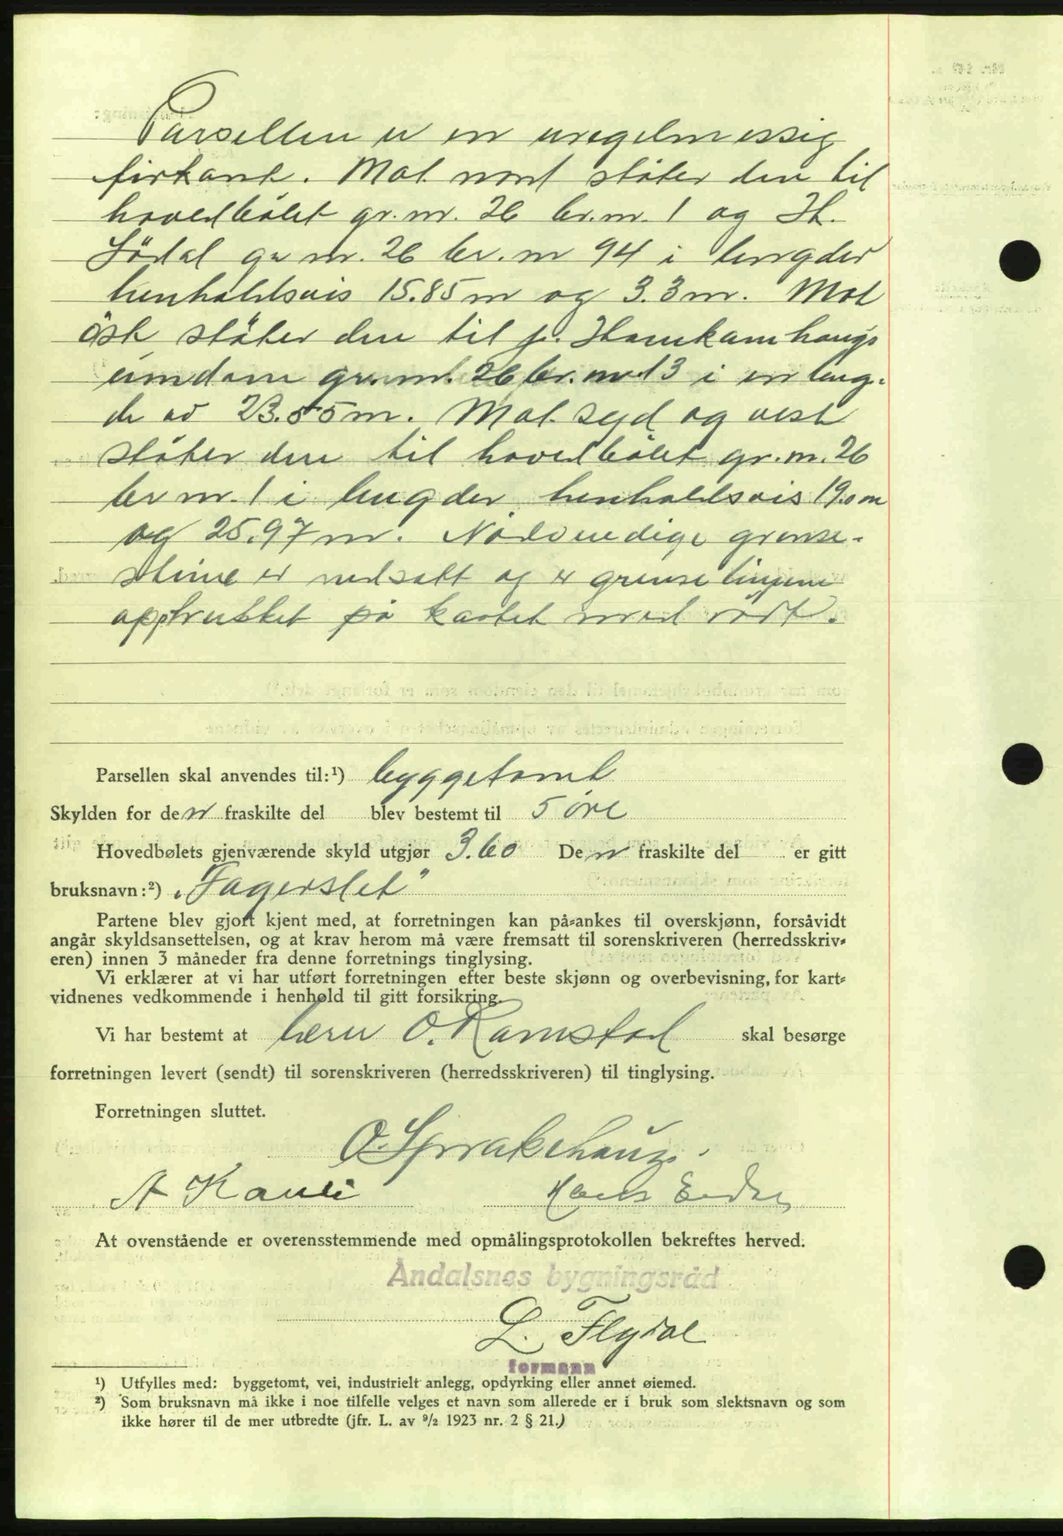 Parsellen er en uregelmessig
firkant. Mot nord støter den til
hovedbølet gr. nr. 26 br. nr. 1 og H.
Sødal gr nr. 26 br. nr 94 i lengder
henholdsvis 15.85 m og 3.3 m. Mot
öst støter den til p. Homkamhaugs
eiendom gr. nr. 26 br. nr. 13 i en leng-
de av 23.55 m. Mot syd og vest
støter den til hovedbølet gr. nr. 26
br nr. 1 i lengder henholdsvis 19.0 m
og 25.97 m. Nödvendige grense-
stene er nedsatt og er grenselinjene
opptrukket på kartet med rødt.
Parsellen skal anvendes til:¹) byggetomt
Skylden for den fraskilte del blev bestemt til 5 øre
Hovedbølets gjenværende skyld utgjør 3.60 Den fraskilte del er gitt
bruksnavn:²) „Fagerslet"
Partene blev gjort kjent med, at forretningen kan på-ankes til overskjønn, forsåvidt
angår skyldsansettelsen, og at krav herom må være fremsatt til sorenskriveren (herredsskriv-
eren) innen 3 måneder fra denne forretnings tinglysing.
Vi erklærer at vi har utført forretningen efter beste skjønn og overbevisning, for kart-
vidnenes vedkommende i henhold til gitt forsikring.
Vi har bestemt at herr O. Ramstad skal besørge
forretningen levert (sendt) til sorenskriveren (herredsskriveren) til tinglysing.
Forretningen sluttet.
O. Sprakehaug.
A Kavli Hans
At ovenstående er overensstemmende med opmålingsprotokollen bekreftes herved.
Åndalsnes bygningsråd
L. Flydal
formann
¹) Utfylles med: byggetomt, vei, industrielt anlegg, opdyrking eller annet øiemed.
²) Som bruksnavn må ikke i noe tilfelle velges et navn som allerede er i bruk som slektsnavn og som
ikke hører til de mer utbredte (jfr. L. av ⁹/₂ 1923 nr. 2 § 21.)